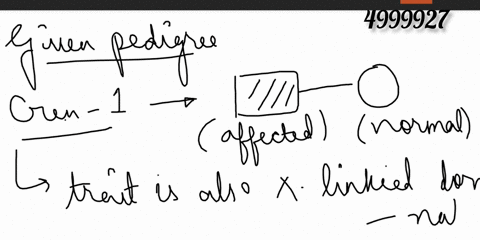 4999927
Given pedigree
Gren-1 → (affected) (normal)
trait is also X. linkied dom
- nal